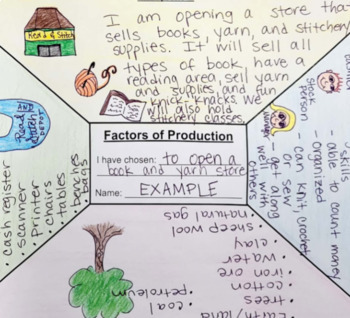 Read & Stitch
I am opening a store that
sells books, yarn, and stitchery
supplies. It will sell all
types of book, have a
reading area, sell yarn
and supplies and fun
knick-knacks. We
will also hold
stitchery classes.
Factors of Production
I have chosen: to open a
book and yarn store
Name: EXAMPLE
READ AND Stitch
• cash register
• scanner
• printer
• chairs
• tables
• benches
• bags
stock person
skills
- able to count money
- organized
- can knit, crochet
or sew
- get along
well with
others
Earth/land
• trees
• cotton
• iron ore
• water
• clay
• sheep wool
natural gas
• coal
• petroleum